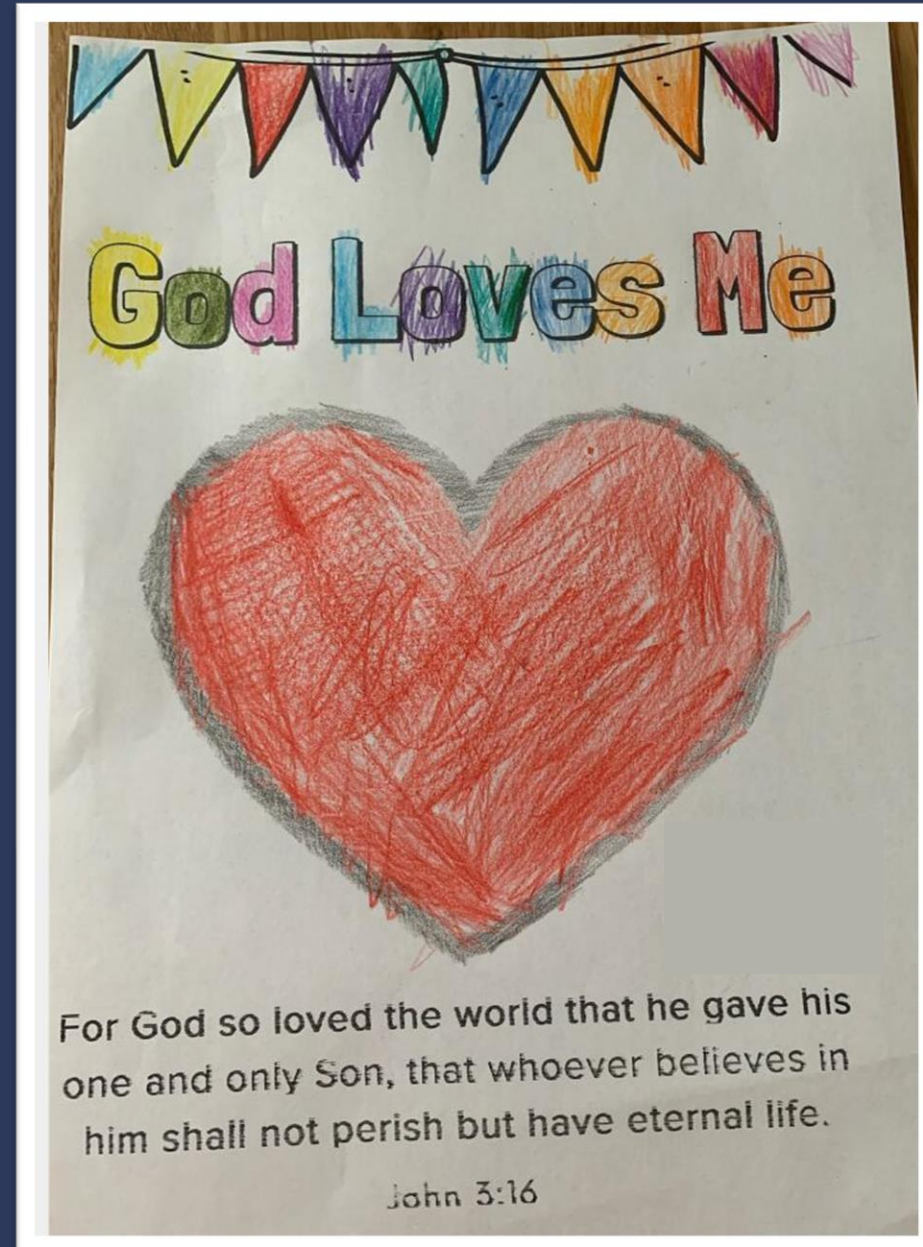 God Loves Me
For God so loved the world that he gave his
one and only Son, that whoever believes in
him shall not perish but have eternal life.
John 3:16